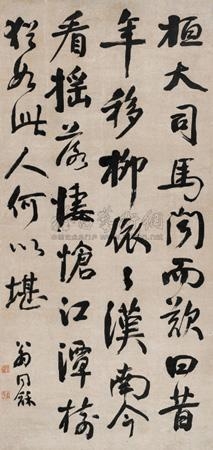 桓大司馬聞而歎曰昔
年移柳依〻漢南今
看摇落悽愴江潭樹
猶如此人何以堪
翁同龢